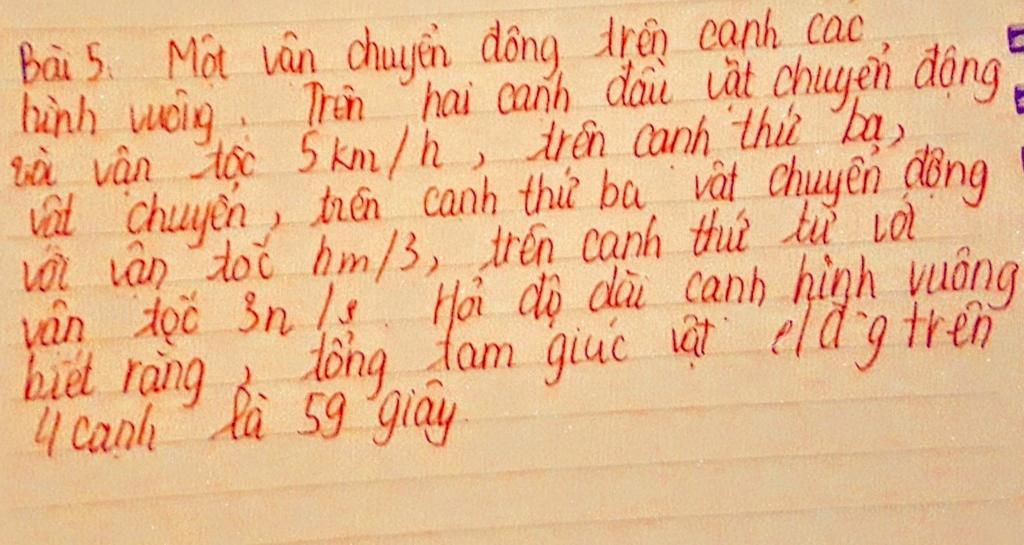 Bài 5. Một vân chuyển đông trên canh cac
hình vuông. Trên hai canh đâu vật chuyển động
vơi vận tộc 5 km/h, trên canh thứ ba,
vât chuyên, trên canh thứ ba vât chuyển động
với vân tốc hm/3, trên canh thứ tư với
vân tọc 3n/s. Hỏi độ dài canh hình vuông
biết rằng, tổng tam giúc vật trên
4 canh là 59 giây